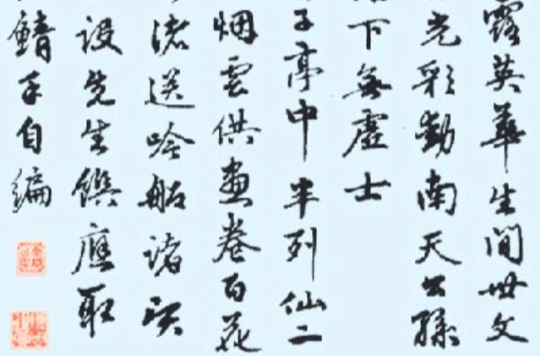 露英華生間世文
光彩動南天公孫
下無虛士
子亭中半列仙二
烟雲供畫卷百花
渚送吟船諸賢
設先生饌應取
鯖手自編